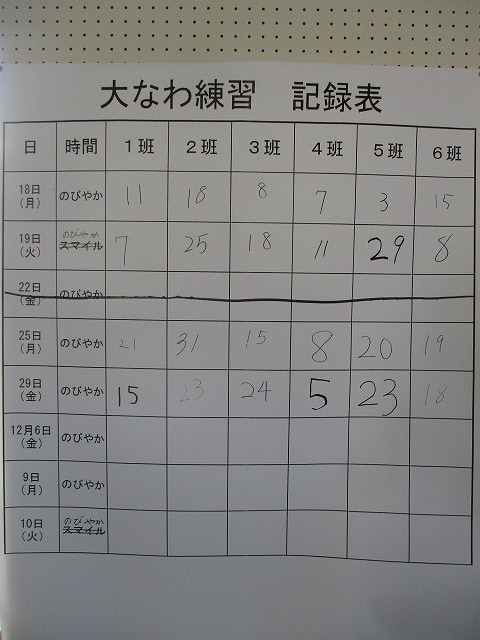 大なわ練習　記録表
日 時間 1班 2班 3班 4班 5班 6班
18日（月） のびやか 11 18 8 7 3 15
19日（火） のびやか スマイル 7 25 18 11 29 8
22日（金） のびやか
25日（月） のびやか 21 31 15 8 20 19
29日（金） のびやか 15 23 24 5 23 18
12月6日（金） のびやか
9日（月） のびやか
10日（火） のびやか スマイル